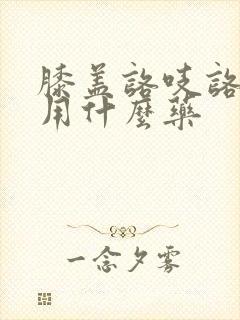 膝盖咯吱咯
用什麼藥
一念夕雾